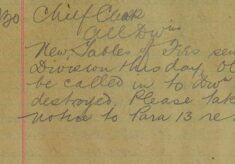 30 Chief Clerk
All Divns
New Tables of Fees sen
Division this day, Ol
be called in to Divn
destroyed, Please tak
notice to Para 13 re